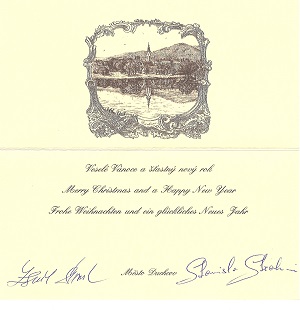 Veselé Vánoce a šťastný nový rok
Merry Christmas and a Happy New Year
Frohe Weihnachten und ein glückliches Neues Jahr
Město Duchcov